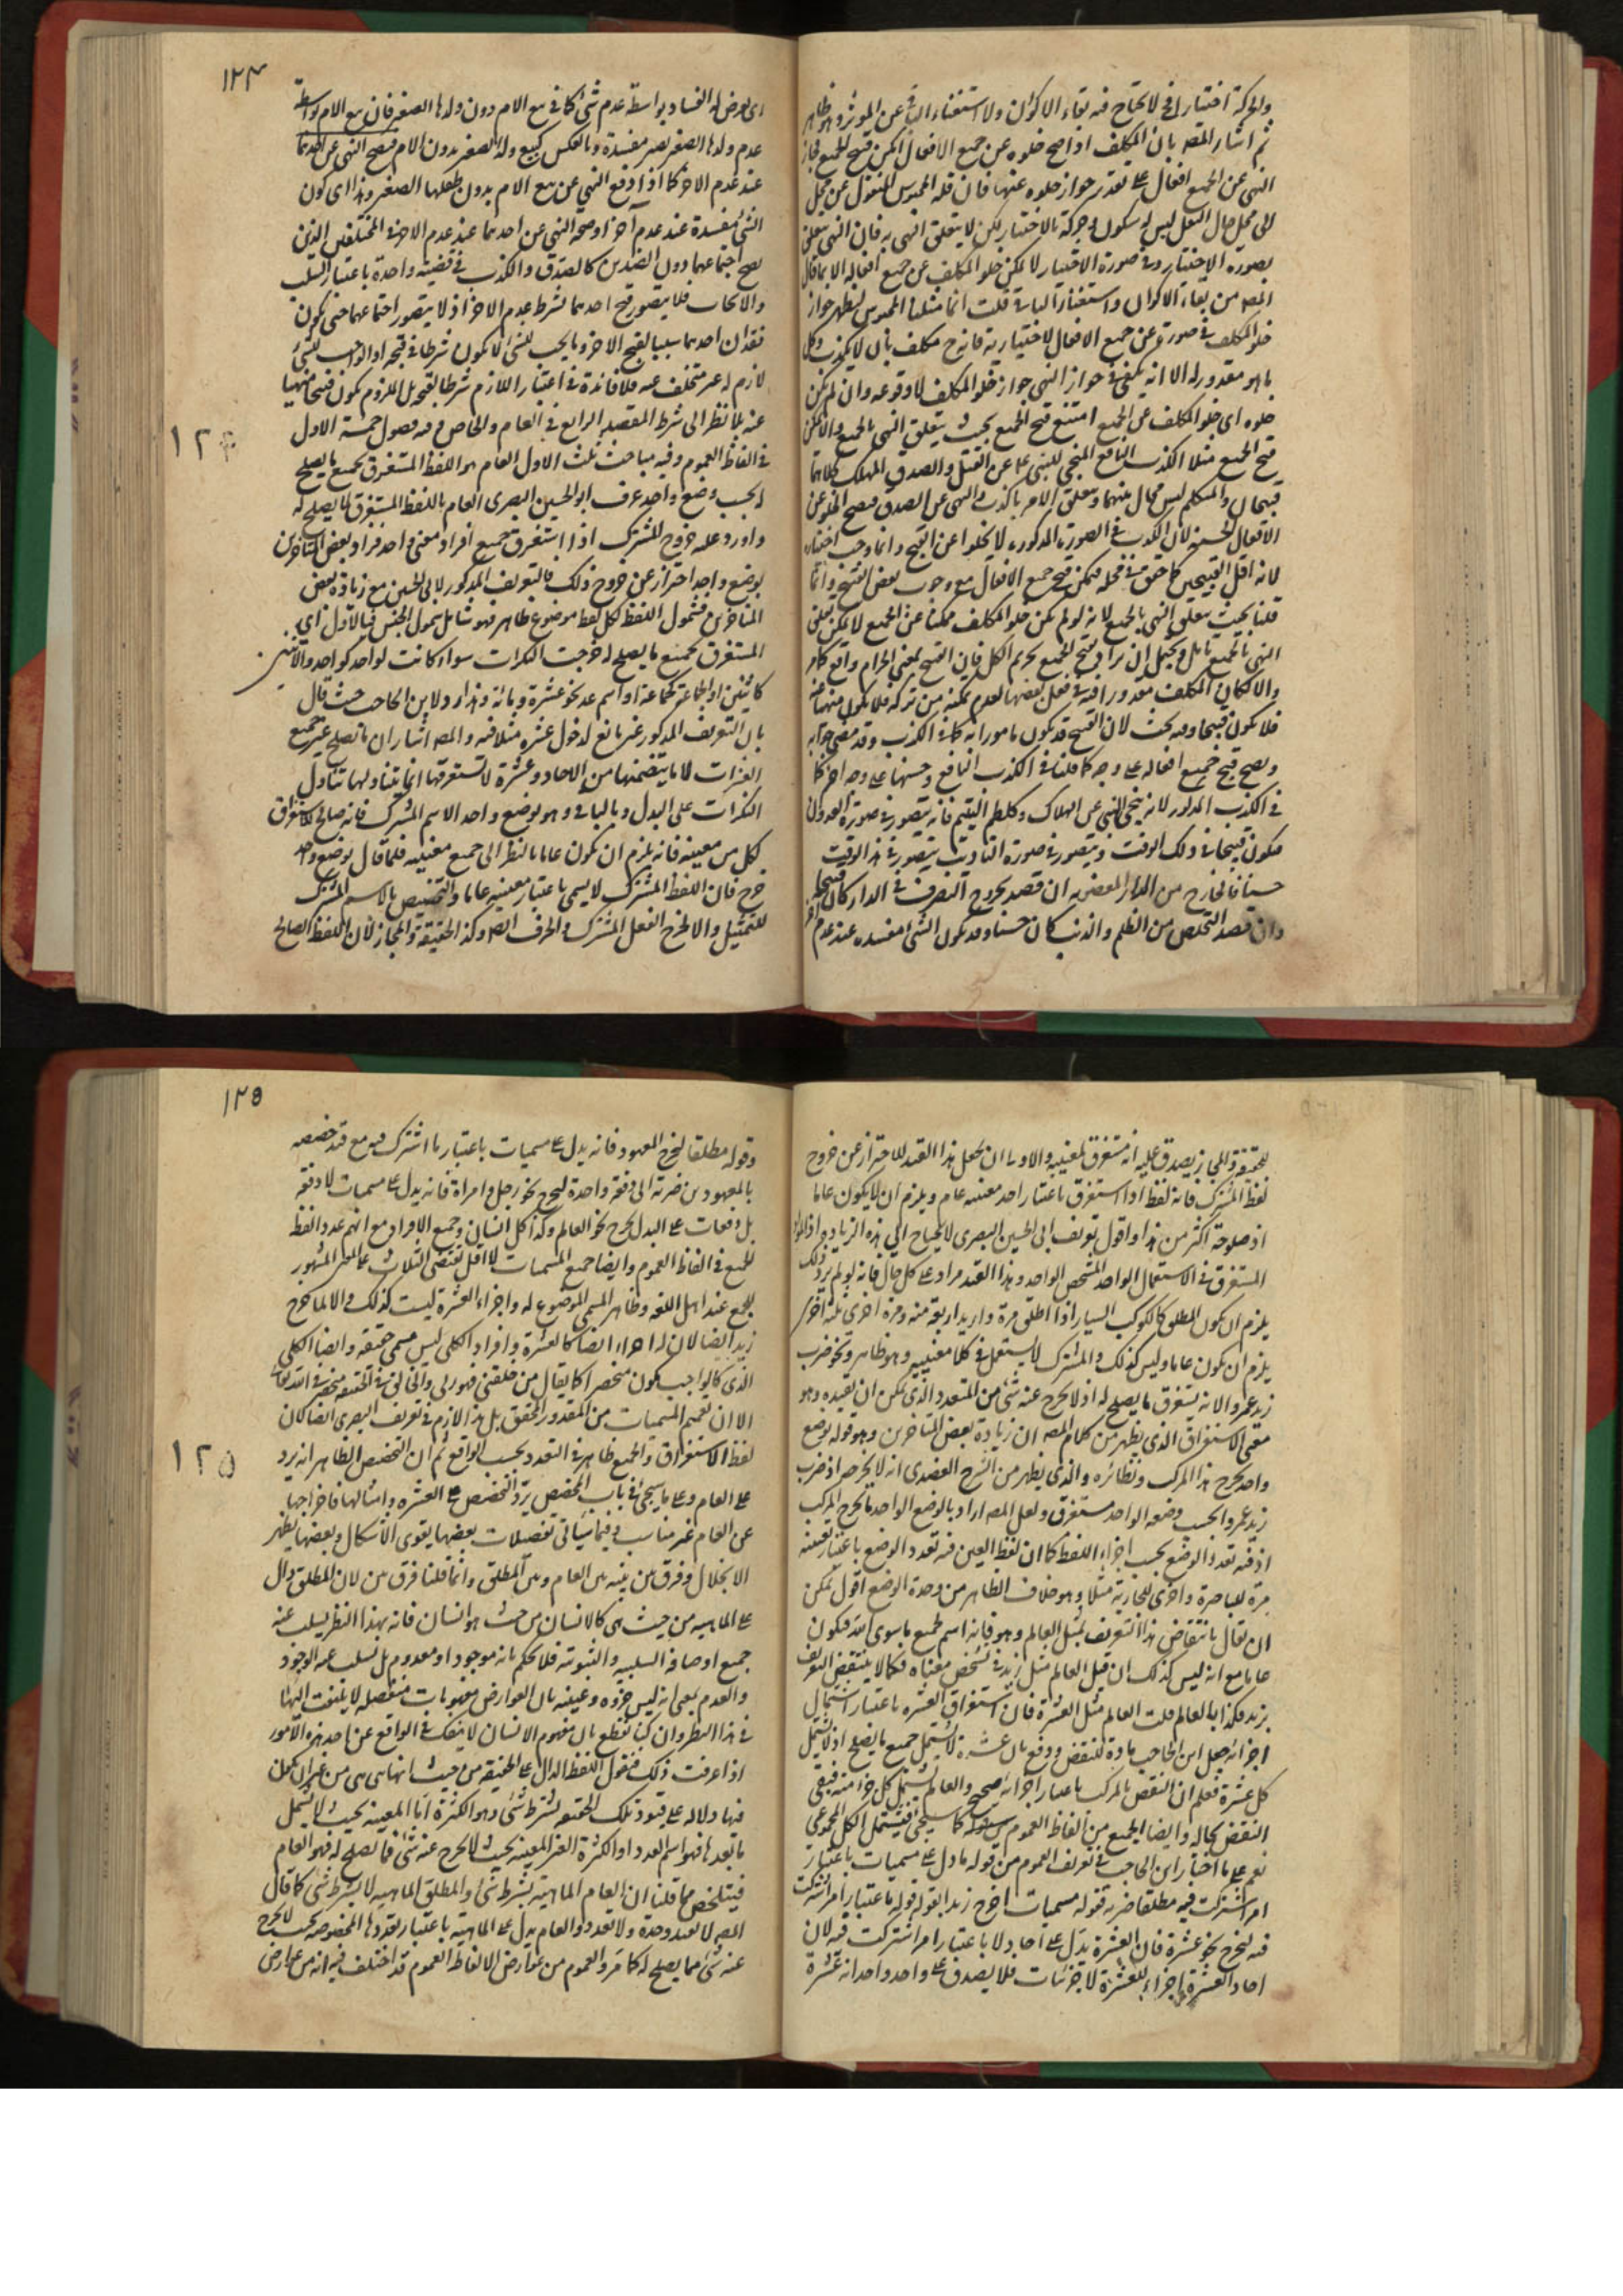 والحركة اختياران لا يحتاج فيه بقاء الاكوان ولا استغناء الباقى عن المؤثر وهو ظاهر
ثم اشار المصه بان المكلف اذا صح خلوه عن جميع الافعال امكن قبح الجميع فجاز
النهى عن الجميع افعال على تقدير جواز خلوه عنها فان قلت المحبوس المنقول عن محل
الى محل حال النقل ليس له سكون وحركة بالاختيار لكن لا يتعلق النهى به فان النهى يتعلق
بصورة الاختيار وفى صورة الاختيار لا يمكن خلو المكلف عن جميع افعاله الا بما قال
المصه من بقاء الاكوان واستغناء الباقى قلت انما مثلنا المحبوس ليظهر جواز
خلو المكلف فى صورة عن جميع الافعال الاختيارية فانه ح مكلف بان لا يكذب وكل
ما هو مقدور له الا انه يكفى فى جواز النهى جواز خلو المكلف لا وقوعه وان لم يكن
خلوه اى خلو المكلف عن الجميع امتنع قبح الجميع بحيث يتعلق النهى بالجميع والا يمكن
قبح الجميع مثلا الكذب النافع المنجى للنبى ع عن القتل والصدق المهلك كلاهما
قبيحان والمتكلم ليس بخال منهما ويتعلق الامر بالكذب والنهى عن الصدق فيصح الخلو عن
الافعال الحسنة لان الكذب فى الصورة المذكورة لا يخلوا عن القبح وانما وجب اختياره
لانه اقل القبيحين كما حقق فى محله فيمكن قبح جميع الافعال مع وجوب بعض القبيح وانما
قلنا بحيث يتعلق النهى بالجميع لانه لو لم يكن خلو المكلف ممكنا عن الجميع لا يمكن تعلق
النهى بالجميع تامل ويحتمل ان يراد بقبح الجميع تحريم الكل فان القبح بمعنى الحرام واقع كثيرا
والا لكان المكلف معذورا فيه فى فعل بعضها لعدم تمكنه من تركه فلا يكون منهيا عنه
فلا يكون قبيحا وفيه بحث لان القبيح قد يكون مامورا به كما فى الكذب وقد مضى جوابه
ويصح قبح جميع افعاله على وجه كما قلنا فى الكذب النافع وحسنها على وجه اخر كما
فى الكذب المذكور لانه ينجى النبى عن الهلاك وكلطم اليتيم فانه يتصور فى صورة العدوان
فيكون قبيحا فى ذلك الوقت ويتصور فى صورة التاديب يتصور فى هذا الوقت
حسنا فالخارج من الدار المغصوبة ان قصد بخروجه التصرف فى الدار كان قبيحا
وان قصد التخلص من الظلم والذنب كان حسنا وقد يكون الشىء مفسدة عند عدم اخر
١٢٤
اى يعرض له الفساد بواسطة عدم شىء كما فى بيع الام دون ولدها الصغير فان بيع الام بواسطة
عدم ولدها الصغير يصير مفسدة وبالعكس كبيع ولد الصغير بدون الام فيصح النهى عن احدهما
عند عدم الاخر كما اذا وقع النهى عن بيع الام بدون طفلها الصغير وهذا اى كون
الشىء مفسدة عند عدم اخر او صحة النهى عن احدهما عند عدم الاخر فى المختلفين الذين
يصح اجتماعهما دون الضدين كالصدق والكذب فى قضية واحدة باعتبار السلب
والايجاب فلا يتصور قبح احدهما بشرط عدم الاخر اذ لا يتصور اجتماعهما حتى يكون
فقدان احدهما سببا لقبح الاخر وما يجب للشىء لا يكون شرطا فى قبحه اذ الواجب للشىء
لازم له غير متخلف عنه فلا فائدة فى اعتبار اللازم شرطا لقبح بل الملزوم يكون قبيحا منهيا
عنه بلا نظر الى شرط المقصد الرابع فى العام والخاص وفيه فصول خمسة الاول
١٢٤
فى الفاظ العموم وفيه مباحث ثلث الاول العام هو اللفظ المستغرق لجميع ما يصلح
له بحسب وضع واحد عرف ابو الحسين البصرى العام باللفظ المستغرق لما يصلح له
واورد عليه خروج المشترك اذا استغرق جميع افراد معنى واحد فزاد بعض المتأخرين
بوضع واحد احترازا عن خروج ذلك فالتعريف المذكور لابى الحسين مع زيادة بعض
المتأخرين فشمول اللفظ لكل لفظ موضوع ظاهر فهو شامل شمول الجنس فبالاول اى
المستغرق لجميع ما يصلح له خرجت النكرات سواء كانت لواحد كواحد والاثنين
كاثنين او الجماعة كجماعة او اسم عدد نحو عشرة ومائة وهذا رد لابن الحاجب حيث قال
بان التعريف المذكور غير مانع لدخول عشرة مثلا فيه والمصه اشار ان ما تصلح عشرة جميع
العشرات لا ما يتضمنها من الاحاد وعشرة لا تستغرقها انما يتناولها تناول
النكرات على البدل وبالباقى وهو بوضع واحد الاسم المشترك فانه صالح لاستغراق
كل من معنييه فانه يلزم ان يكون عاما بالنظر الى جميع معنييه فلما قال بوضع واحد
خرج فان اللفظ المشترك لا يسمى باعتبار معنييه عاما والتخصيص بالاسم المشترك
للتمثيل والا لخرج الفعل المشترك والحرف ايضا وكذا الحقيقة والمجاز لان اللفظ الصالح
للحقيقة والمجاز يصدق عليه انه مستغرق لمعنييه والاولى ان يجعل هذا القيد للاحتراز عن خروج
لفظ المشترك فانه لفظ اذا استغرق باعتبار احد معنييه عام ويلزم ان لا يكون عاما
اذ صلوحه اكثر من هذا واقول تعريف ابى الحسين البصرى لا يحتاج الى هذه الزيادة اذ المراد
المستغرق فى الاستعمال الواحد المشخص الواحد وهذا القيد مراد على كل حال فانه لو لم يرد ذلك
يلزم ان يكون المطلق كالكوكب السيار اذا اطلق مرة واريد اربعة منه ومرة اخرى ثلثة اخرى
يلزم ان يكون عاما وليس كذلك والمشترك لا يستعمل فى كلا معنييه وهو ظاهر ونحو ضرب
زيد عمروا لانه يستغرق ما يصلح له اذ لا يخرج عنه شىء من المتعدد الذى يمكن ان تفيده وهو
معنى الاستغراق الذى يظهر من كلام المصه ان زيادة بعض المتأخرين وهو قوله بوضع
واحد يخرج هذا المركب ونظائره والذى يظهر من الشرح العضدى انه لا يخرجه اذ ضرب
زيد عمروا بحسب وضعه الواحد مستغرق ولعل المصه اراد بالوضع الواحد ما يخرج المركب
اذ فيه تعدد الوضع بحسب اجزاء اللفظ كما ان لفظ العين فيه تعدد الوضع باعتبار تعيينه
مرة للباصرة واخرى للجارية مثلا وهو خلاف الظاهر من وحدة الوضع اقول يمكن
ان يقال بانتقاض هذا التعريف بمثل العالم وهو فانه اسم لجميع ما سوى الله فيكون
عاما مع انه ليس كذلك ان قيل العالم مثل زيد فى تشخص معناه فكما لا ينتقض التعريف
بزيد فكذا بالعالم قلت العالم مثل العشرة فان استغراق العشرة باعتبار اشتمال
اجزائه جعل ابن الحاجب مادة للنقض ودفع بان عشرة لا يشتمل جميع ما يصلح اذ لا يشتمل
كل عشرة فعلم ان النقض بالمركب باعتبار اجزائه صحيح والعالم يشتمل كل جزء منه فبقى
النقض بحاله وايضا الجميع من الفاظ العموم كما سيجئ فيشتمل الكل المجموعى
نعم على ما اختار ابن الحاجب فى تعريف العموم من قوله ما دل على مسميات باعتبار
امر اشتركت فيه مطلقا ضربة فقوله مسميات اخرج زيدا بقوله قوله باعتبار امر اشتركت
فيه ليخرج نحو عشرة فان العشرة تدل على احاد لا باعتبار امر اشتركت فيه لان
احاد العشرة اجزاء للعشرة لا جزئيات فلا يصدق على واحد واحد انه عشرة
١٢٥
وقوله مطلقا ليخرج المعهود فانه يدل على مسميات باعتبار ما اشترك فيه مع قيد خصصه
بالمعهودين ضربة اى دفعة واحدة ليخرج نحو رجل وامرأة فانه يدل على مسميات لا دفعة
بل دفعات على البدل يخرج نحو العالم وكذا كل انسان وجميع الافراد مع انهم عدوا لفظ
الجميع فى الفاظ العموم وايضا جميع المسميات لا اقل يقتضى الثلاث على المشهور
للجمع عند اهل اللغة وظاهر المسمى الموضوع له واجزاء العشرة ليست كذلك والا لما خرج
زيد ايضا لان له اجزاء ايضا كالعشرة وافراد الكلى ليس مسمى حقيقة وايضا الكلى
الذى كالواجب يكون منحصرا كما يقال من خلقنى فهو ربى والخالق فى الحقيقة منحصر فى الله تعالى
الا ان تعميم المسميات من المقدور المحقق بل هذا لازم فى تعريف البصرى ايضا كان
لفظ الاستغراق والجميع ظاهر فى التعدد بحسب الواقع ثم ان التخصيص الظاهر انه يرد
١٢٥
على العام وعلى ما سيجئ فى باب التخصيص يرد التخصيص على العشرة وامثالها فاخراجها
عن العام غير مناسب وفيما سيأتى تفصيلات بعضها يقوى الاشكال وبعضها يظهر
الانحلال وفرق بين بينه بين العام وبين المطلق وانما قلنا فرق بين لان المطلق دال
على الماهية من حيث هى كالانسان من حيث هو انسان فانه بهذا النظر يسلب عنه
جميع اوصافه السلبية والثبوتية فلا يحكم بانه موجود او معدوم بل يسلب عنه الوجود
والعدم بمعنى انه ليس جزؤه وعينه بل العوارض مفهومات منفصلة لا يلتفت اليها
فى هذا النظر وان كنا نقطع بان مفهوم الانسان لا ينفك فى الواقع عن احد هذه الامور
اذا عرفت ذلك فنقول اللفظ الدال على الحقيقة من حيث انها هى هى من غير ان يكون
فيها دلالة على قيود تلك الحقيقة بشرط شىء وهو الكثرة اما المعينة بحيث لا يشمل
ما بعدها فهو اسم العدد او الكثرة الغير المعينة بحيث لا يخرج عنه شىء مما يصلح له فهو العام
فيتلخص مما قلنا ان العام الماهية بشرط شىء والمطلق الماهية لا بشرط شىء كما قال
المصه لا بقيد وحدة ولا تعدد والعام يدل على الماهية باعتبار تعددها المخصوصة بحيث لا يخرج
عنه شىء مما يصلح له كما مر والعموم من عوارض الالفاظ العموم قد اختلف فيه انه من عوارض